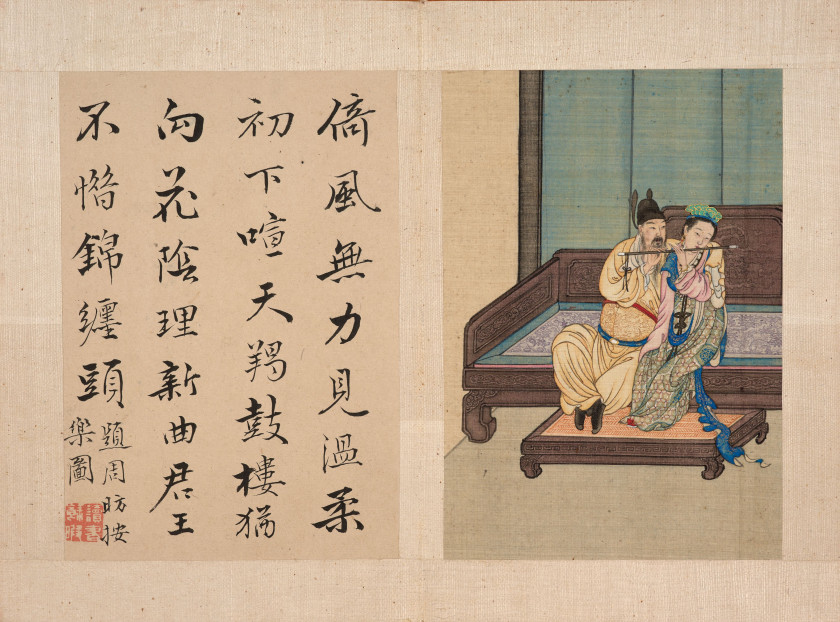 倚風無力見溫柔
初下喧天羯鼓樓猶
向花陰理新曲君王
不惜錦纏頭
題周昉按
樂圖